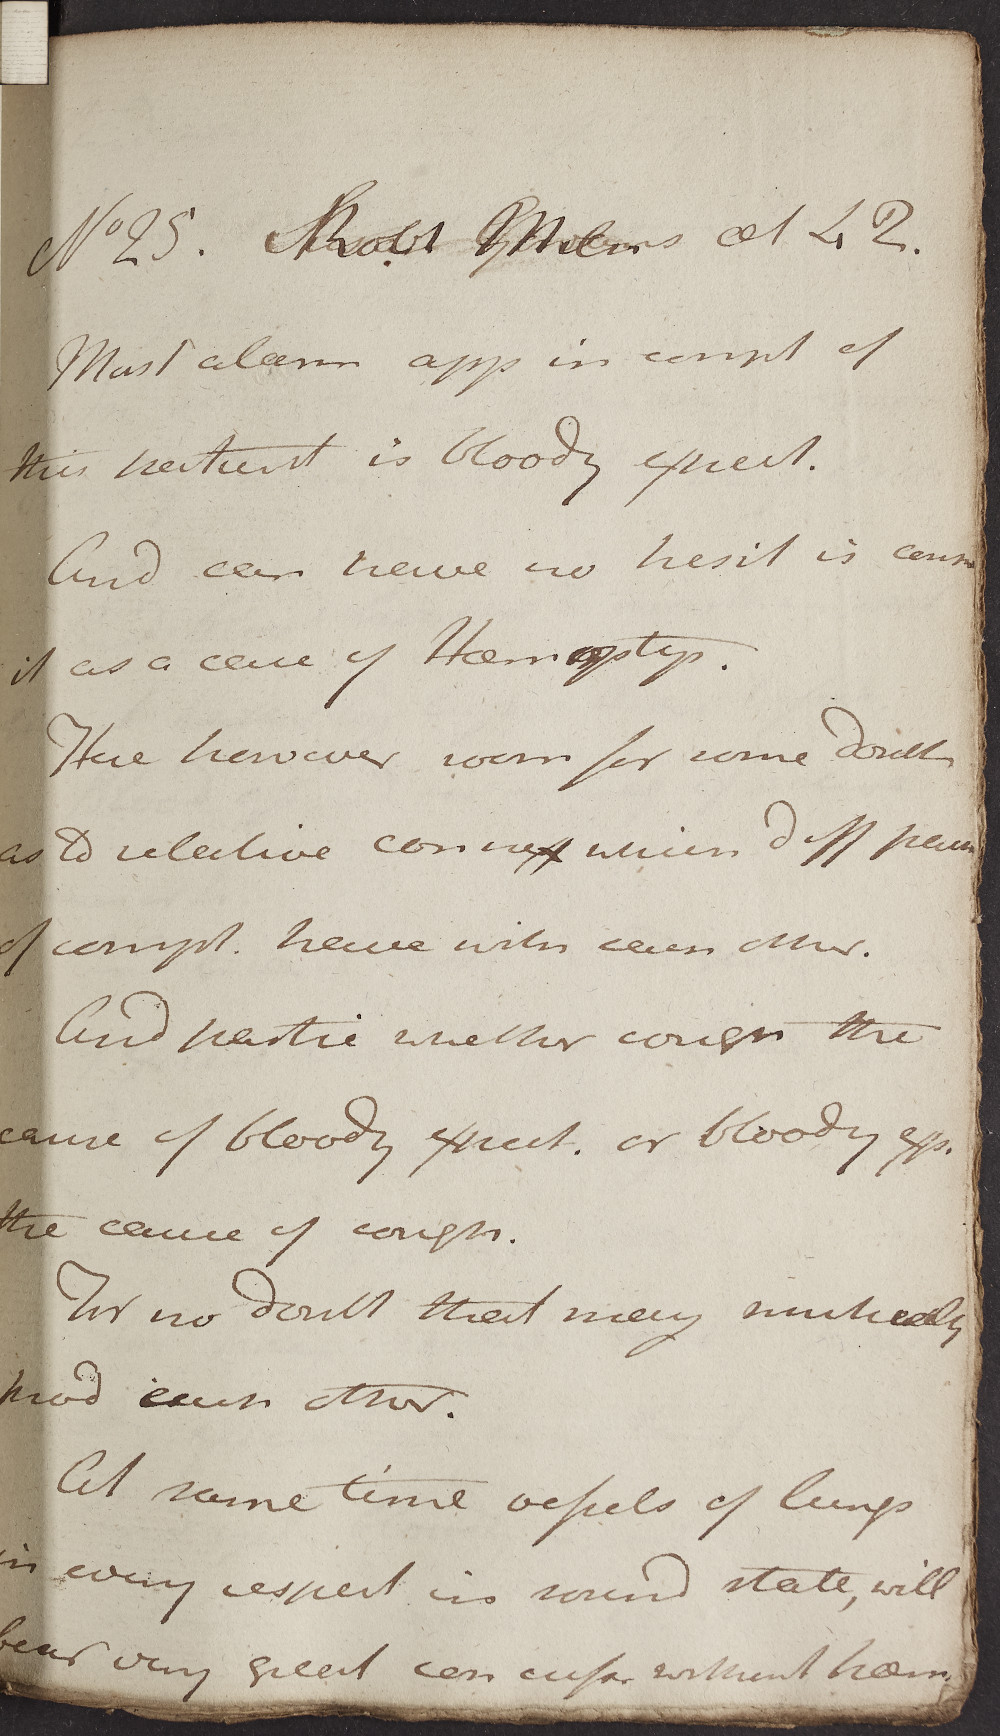 No 25. Robt Milns æt 42.
Most alarm app in compt of
this patient is bloody expect.
And can have no hesit in cons
it as a case of Hæmoptys.
Here however room for some doubt
as to relative connex which diff parts
of compt. have with each other.
And partic whether cough the
cause of bloody expect. or bloody exp.
the cause of cough.
For no doubt that may mutually
prod each other.
At same time vessels of lungs
in every respect in sound state, will
bear very great concuss. without hæm.